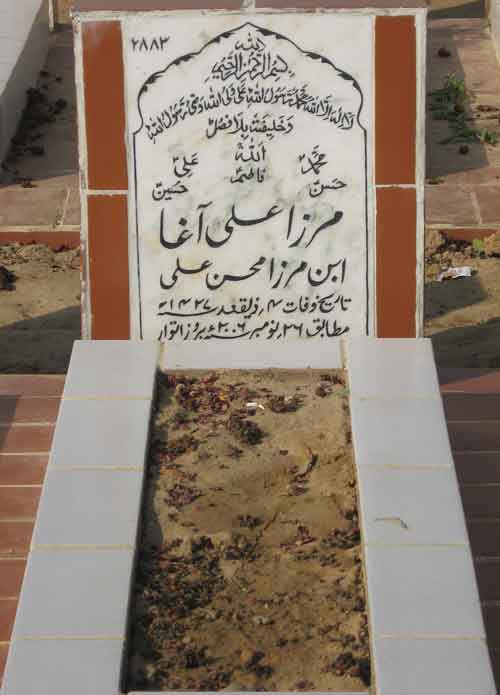 ۲۸۸۳
اللہ
بسم اللہ الرحمن الرحیم
لا الہ الا اللہ محمد رسول اللہ علی ولی اللہ وصی رسول اللہ
وخلیفتہ بلا فصل
محمدؐ اللہ علیؑ
حسنؑ فاطمہؑ حسینؑ
مرزا علی آغا
ابن مرزا محسن علی
تاریخ وفات ۴ ذیقعد ۱۴۲۷ھ
مطابق ۲۶ نومبر ۲۰۰۶ء بروز اتوار